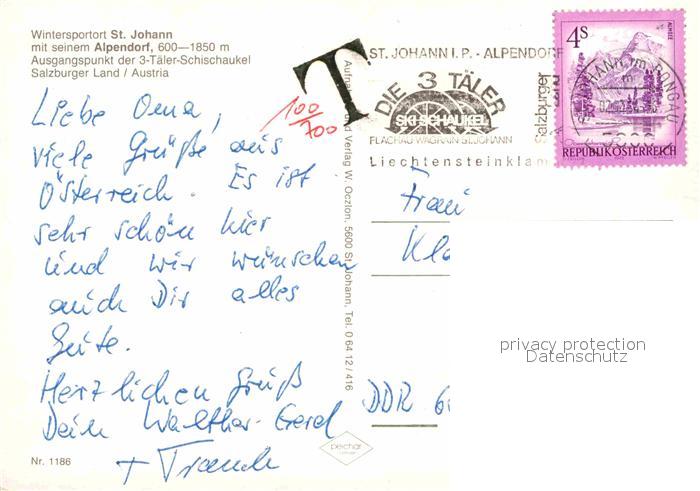 Wintersportort St. Johann
mit seinem Alpendorf, 600—1850 m
Ausgangspunkt der 3-Täler-Schischaukel
Salzburger Land / Austria
Liebe Oma,
viele Grüße aus
Österreich. Es ist
sehr schön hier
und wir wünschen
auch Dir alles
Gute.
Herzlichen Gruß
Dein Walther-Gerd
+ Traudi
Nr. 1186
T
100/700
Verlag W. Oczlon, 5600 St. Johann, Tel. 0 64 12 / 416
pechar
ST. JOHANN I. P. - ALPENDORF
DIE 3 TÄLER
SKISCHAUKEL
FLACHAU WAGRAIN ST. JOHANN
Liechtensteinklam
Salzburger
4S
ALMSEE
REPUBLIK ÖSTERREICH
Frau
Kla
DDR 6
privacy protection
Datenschutz